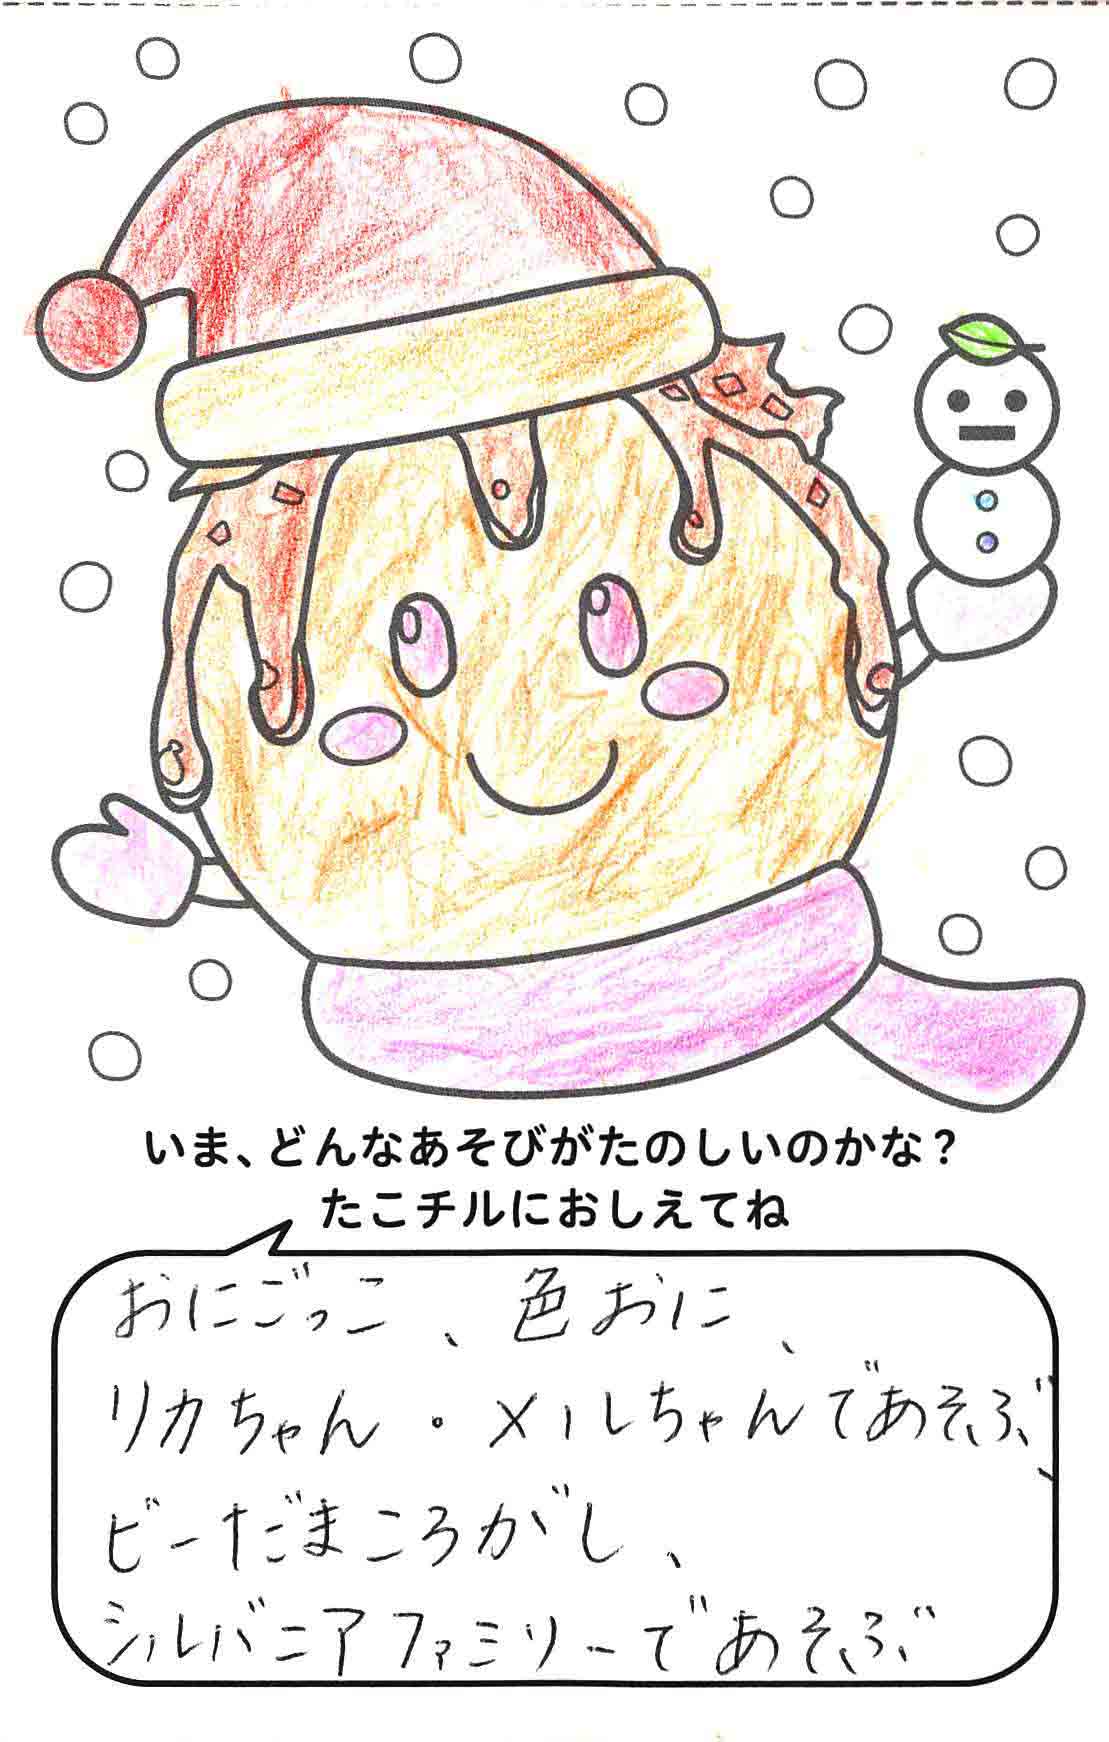 いま、どんなあそびがたのしいのかな？
たこチルにおしえてね
おにごっこ、色おに、
リカちゃん・メルちゃんであそぶ、
ビーだまころがし、
シルバニアファミリーであそぶ